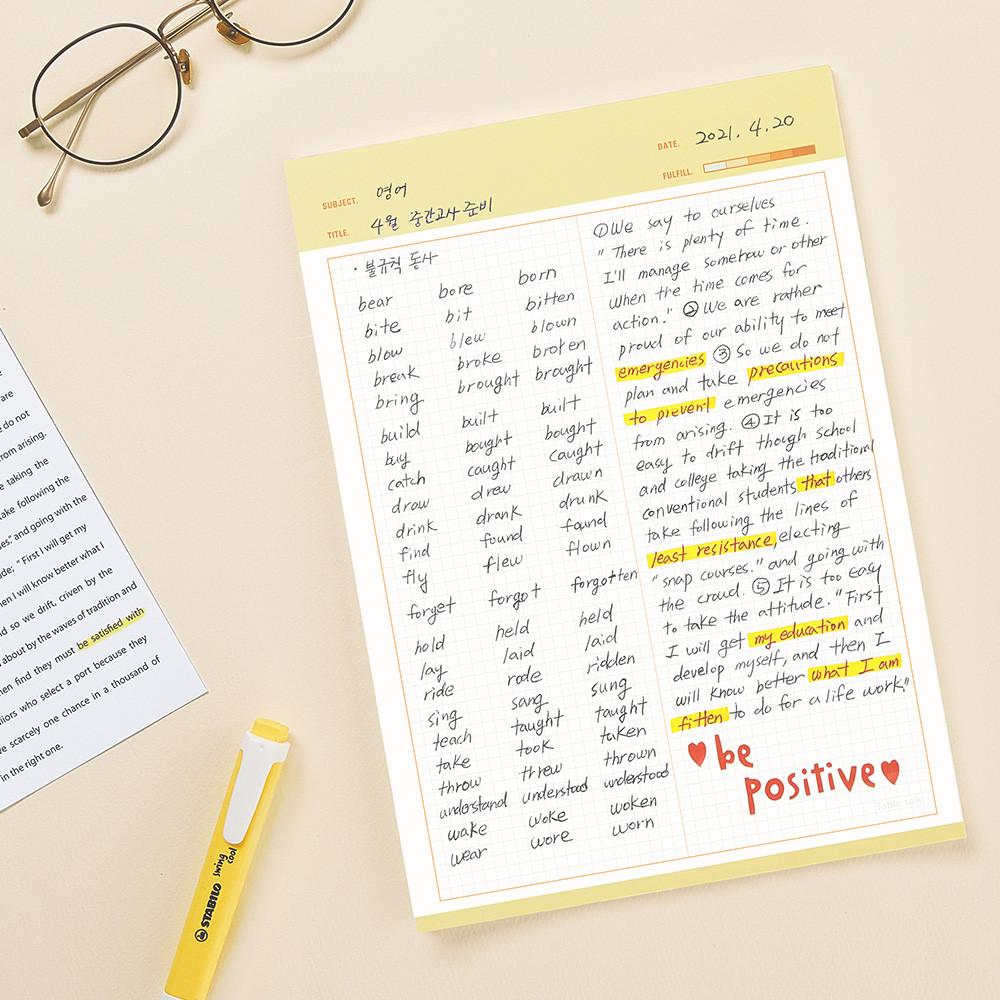 SUBJECT. 영어
TITLE. 4월 중간고사 준비
DATE. 2021. 4. 20
FULFILL.
· 불규칙 동사
bear bore born
bite bit bitten
blow blew blown
break broke broken
bring brought brought
build built built
buy bought bought
catch caught caught
drow drew drawn
drink drank drunk
find found found
fly flew flown
forget forgot forgotten
hold held held
lay laid laid
ride rode ridden
sing sang sung
teach taught taught
take took taken
throw threw thrown
understand understood understood
wake woke woken
wear wore worn
①We say to ourselves
"There is plenty of time.
I'll manage somehow or other
when the time comes for
action." ② We are rather
proud of our ability to meet
emergencies ③ So we do not
plan and take precautions
to prevent emergencies
from arising. ④ It is too
easy to drift though school
and college taking the traditional
conventional students that others
take following the lines of
least resistance, electing
"snap courses." and going with
the croud. ⑤ It is too easy
to take the attitude. "First
I will get my education and
develop myself, and then I
will know better what I am
fitten to do for a life work."
♥be
positive♥
Table talk
are
e do not
from arising.
e taking the
take following the
es." and going with the
ude; "First I will get my
hen I will know better what I
d so we drift, criven by the
about by the waves of tradition and
hen find they must be satisfied with
ilors who select a port because they
ve scarcely one chance in a thousand of
in the right one.
STABILO swing cool